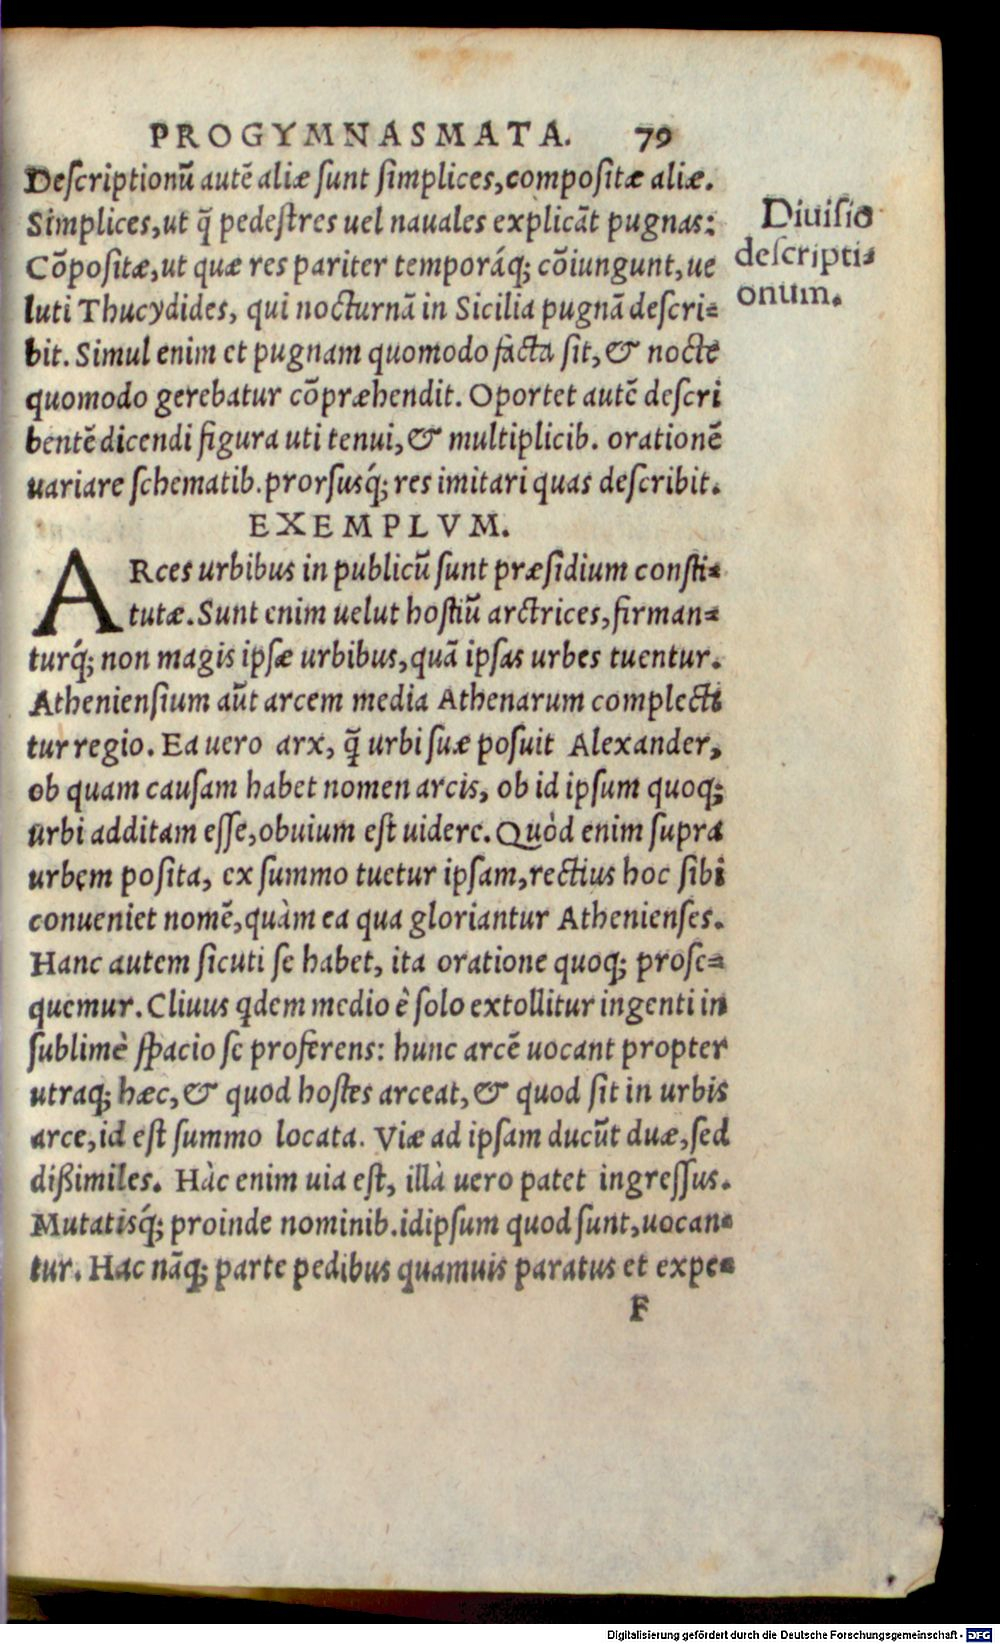 PROGYMNASMATA. 79
Descriptionū autē aliæ sunt simplices, compositæ aliæ.
Simplices, ut q̄ pedestres uel nauales explicāt pugnas:
Cōpositæ, ut quæ res pariter temporáq; cōiungunt, ue
luti Thucydides, qui nocturnā in Sicilia pugnā descri-
bit. Simul enim et pugnam quomodo facta sit, & nocte
quomodo gerebatur cōpræhendit. Oportet autē descri
bentē dicendi figura uti tenui, & multiplicib. orationē
uariare schematib. prorsusq́; res imitari quas describit.
Diuisio
descripti-
onum.
EXEMPLVM.
ARces urbibus in publicū sunt præsidium consti-
tutæ. Sunt enim uelut hostiū arctrices, firman-
turq́; non magis ipsæ urbibus, quā ipsas urbes tuentur.
Atheniensium aūt arcem media Athenarum complecti
tur regio. Ea uero arx, q̄ urbi suæ posuit Alexander,
ob quam causam habet nomen arcis, ob id ipsum quoq;
urbi additam esse, obuium est uidere. Quòd enim supra
urbem posita, ex summo tuetur ipsam, rectius hoc sibi
conueniet nomē, quàm ea qua gloriantur Athenienses.
Hanc autem sicuti se habet, ita oratione quoq; prose-
quemur. Cliuus qdem medio è solo extollitur ingenti in
sublimè spacio se proferens: hunc arcē uocant propter
utraq; hæc, & quod hostes arceat, & quod sit in urbis
arce, id est summo locata. Viæ ad ipsam ducūt duæ, sed
dißimiles. Hàc enim uia est, illà uero patet ingressus.
Mutatisq́; proinde nominib. idipsum quod sunt, uocan-
tur. Hac nāq; parte pedibus quamuis paratus et expe-
F
Digitalisierung gefördert durch die Deutsche Forschungsgemeinschaft - DFG